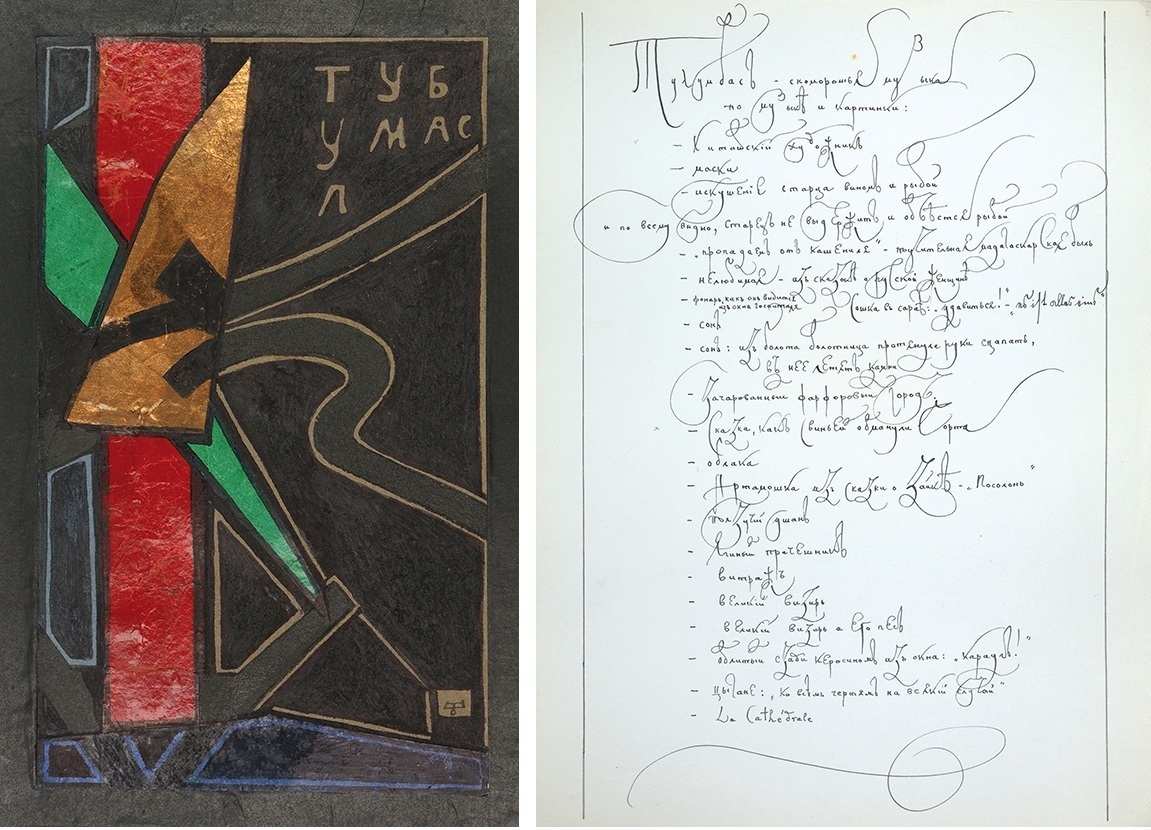 ТУБ
УМАС
Л
Тулумбасъ - скоморошья музыка
по музыкѣ и картинки:
- Китайскiй художникъ
- маски
- искушенiе старца виномъ и рыбой
и по всему видно, старецъ не выдержитъ и объѣстся рыбой
- „пропадаетъ отъ кашенiя“ - поучительная мадагаскарская быль
- нелюбимая - изъ сказокъ о русской женщинѣ
- фонарь, какъ онъ видится
изъ окна госпиталя
- сонъ
- сонъ: изъ болота болотница протянула руки сцапать,
въ нее летятъ камни
- Зачарованный фарфоровый городъ.
- Сказка, какъ свиньей обманули чорта
- облака
- Артамошка изъ сказки о Зайкѣ - „Посолонь“
- Ползучiй
- витражъ
- великiй визирь
- великiй визирь и его песъ
- облитый сзади керосиномъ изъ окна: „караулъ!“
- цыгане: „ко всѣмъ чертямъ на всякiй случай“
- La Cathédrale